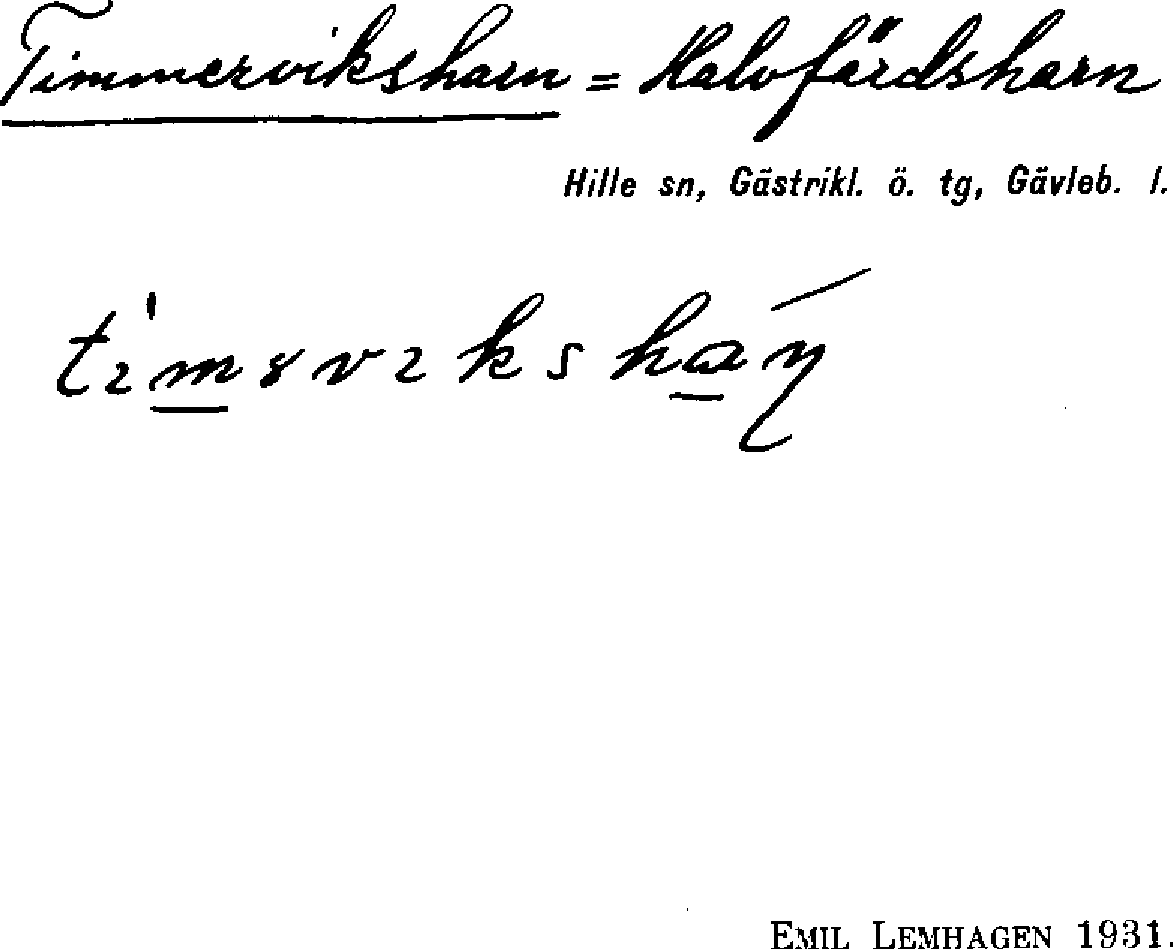 Timmerviksharn = Kalvfärdsharn
Hille sn, Gästrikl. ö. tg, Gävleb. l.
EMIL LEMHAGEN 1931.